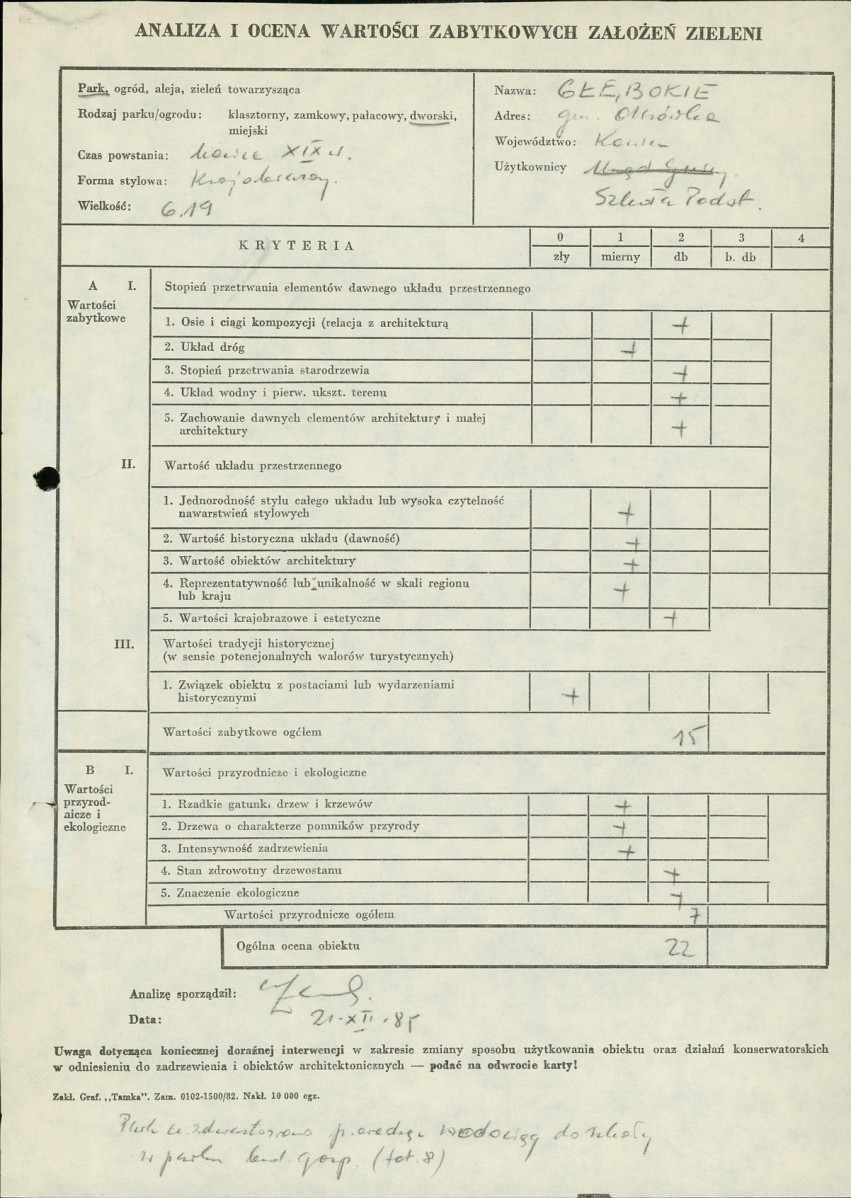 ANALIZA I OCENA WARTOŚCI ZABYTKOWYCH ZAŁOŻEŃ ZIELENI
Park, ogród, aleja, zieleń towarzysząca
Rodzaj parku/ogrodu: klasztorny, zamkowy, pałacowy, dworski,
miejski
Czas powstania: koniec XIX w.
Forma stylowa: Krajobrazowy.
Wielkość: 6.19
Nazwa: GŁĘBOKIE
Adres: gm.
Województwo: Konin
Użytkownicy Urząd Gminy.
Szkoła Podst.
KRYTERIA
0 1 2 3 4
zły mierny db b. db
A I. Stopień przetrwania elementów dawnego układu przestrzennego
Wartości
zabytkowe
1. Osie i ciągi kompozycji (relacja z architekturą +
2. Układ dróg +
3. Stopień przetrwania starodrzewia +
4. Układ wodny i pierw. ukszt. terenu +
5. Zachowanie dawnych elementów architektury i małej
architektury +
II. Wartość układu przestrzennego
1. Jednorodność stylu całego układu lub wysoka czytelność
nawarstwień stylowych +
2. Wartość historyczna układu (dawność) +
3. Wartość obiektów architektury +
4. Reprezentatywność lub unikalność w skali regionu
lub kraju +
5. Wartości krajobrazowe i estetyczne +
III. Wartości tradycji historycznej
(w sensie potencjonalnych walorów turystycznych)
1. Związek obiektu z postaciami lub wydarzeniami
historycznymi +
Wartości zabytkowe ogółem 15
B I. Wartości przyrodnicze i ekologiczne
Wartości
przyrod-
nicze i
ekologiczne
1. Rzadkie gatunki drzew i krzewów +
2. Drzewa o charakterze pomników przyrody +
3. Intensywność zadrzewienia +
4. Stan zdrowotny drzewostanu +
5. Znaczenie ekologiczne +
Wartości przyrodnicze ogółem 7
Ogólna ocena obiektu 22
Analizę sporządził:
Data: 21-XII-85
Uwaga dotycząca koniecznej doraźnej interwencji w zakresie zmiany sposobu użytkowania obiektu oraz działań konserwatorskich
w odniesieniu do zadrzewienia i obiektów architektonicznych — podać na odwrocie karty!
Zakł. Graf. „Tamka". Zam. 0102-1500/82. Nakł. 10 000 egz.
Park zdewastowano wodociąg do szkoły
w parku bud. gosp. (fot. 8)